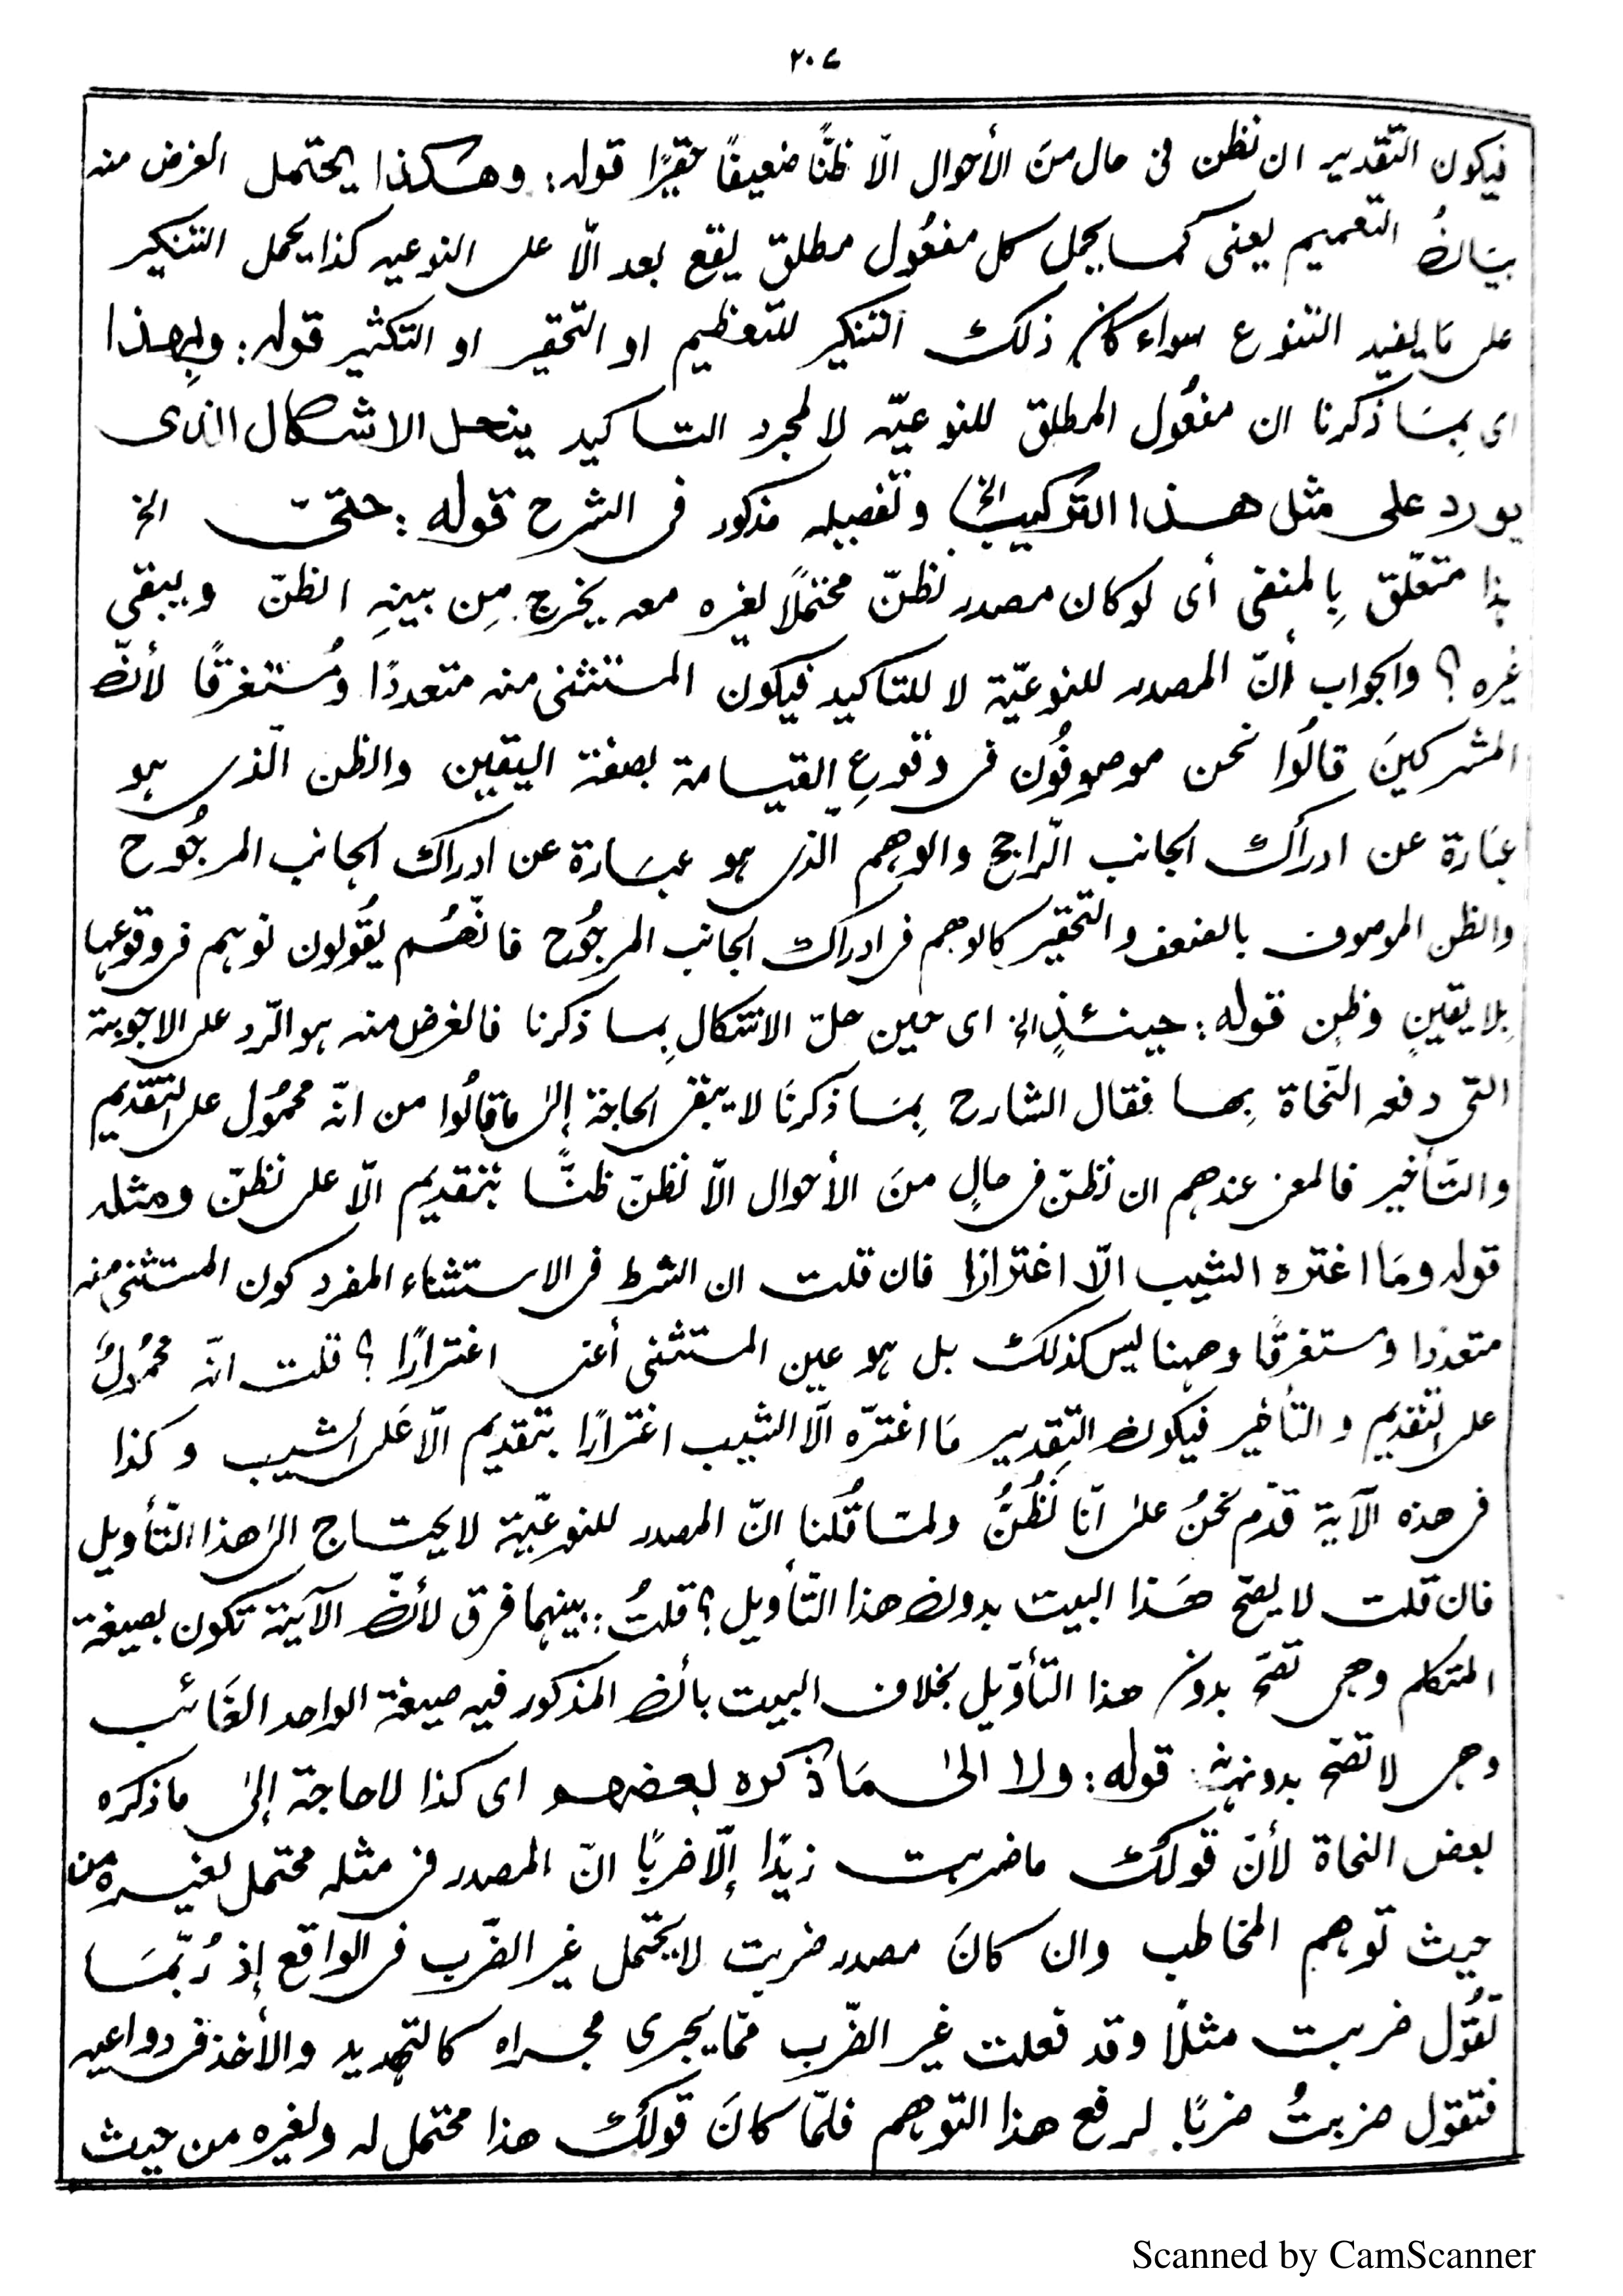 ٢٠٤
فيكون التّقدير ان نظن فى حال منَ الأحوال الّا ظنًّا ضعيفًا حقيرًا قوله: وهكذا يحتمل الغرض منه
بيَانُ التعميم يعنى كما يحمل كل مفعُول مطلق يقع بعد الّا على النوعيه كذا يحمل التنكير
على مَا يفيد التنوع سواء كان ذلك التنكير للتعظيم او التحقير او التكثير قوله: وبِهذا
اى بِمَا ذكرنا ان مفعُول المطلق للنوعيّه لا لمجرد التاكيد ينحل الاشكال الذى
يورد على مثل هذا التركيب الخ وتفصيله مذكور فى الشرح قوله: حتىّ الخ
هذا متعّلق بِالمنفى أى لو كان مصدر نظنّ محتملًا لغيره معه يخرج مِن بينِه الظنّ ويبقى
غيره؟ والجواب أنّ المصدر للنوعيّة لا للتاكيد فيكون المستثنى منه متعددًا ومُستغرقًا لأنّ
المشركينَ قالُوا نحن موصوفُون فى وقوعِ القيامة بصفة اليقين والظن الّذى هو
عبَارة عن ادراك الجانب الرّاجح والوهم الّذى هو عبَارة عن ادراك الجانب المرجُوح
والظن الموصوف بالضعف والتحقير كالوهم فى ادراك الجانب المرجُوح فانّهُم يقُولون نوهم فى وقوعها
بِلا يقينٍ وظنٍ قوله: حينئذٍ الخ اى حين حلّ الاشكال بِما ذكرنا فالغرض منه هو الرّد على الاجوبة
التى دفعه النّحاة بِها فقال الشارح بِمَا ذكرنَا لا يبقى الحاجة إلى ما قالُوا من انّه محمُول على التقديم
والتّأخير فالمعنى عندهم ان نظنّ فى حالٍ منَ الأحوال الّا نظنّ ظنًّا بتقديم الّا على نظنّ ومثله
قوله ومَا اغتره الشيب الّا اغترارًا فان قلت ان الشرط فى الاستثناء المفرد كون المستثنى منه
متعددا ومستغرقًا وههنا ليس كذلك بل هو عين المستثنى أعنى اغترارًا؟ قلت انّه محمُولٌ
على التقديم والتأخير فيكون التقدير مَا اغترّه الّا الشيب اغترارًا بتقديم الّا عَلى الشيب وكذا
فى هذه الآية قدّم نحنُ على انّا نَظُنُّ ولمّا قُلنا انّ المصدر للنوعيّة لا يحتاج الى هذا التّأويل
فان قلت لا يصّح هَذا البيت بدون هذا التّأويل؟ قلتُ: بينهما فرق لأنّ الآيَة تكون بصيغة
المتكلم وهى تصّح بدون هذا التّأوّيل بخلاف البيت بأنّ المذكور فيه صيغة الواحد الغَائب
وهى لا تصّح بدونه قوله: ولا الى مَا ذكره بعضهم اى كذا لا حاجة إلى ما ذكرَه
بعض النحاة لأنّ قولك ما ضربت زيدًا إلّا ضربًا انّ المصدر فى مثله محتمل لغيره من
حيث توهم المخاطب وان كانَ مصدر ضربت لا يحتمل غير الضّرب فى الواقع إذ رُبّمَا
تقُول ضربت مثلًا وقد فعلت غير الضّرب ممّا يجرى مجراه كالتهديد والأخذ فى دواعيه
فتقول ضربتُ ضربًا لرفع هذا التوهم فلمّا كانَ قولك هذا محتمل له ولغيره من حيث
Scanned by CamScanner